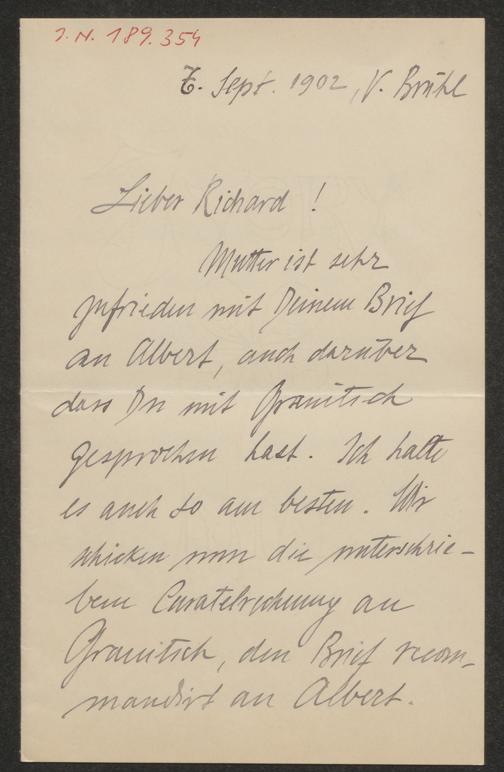 J.N. 189.354
7. Sept. 1902, V. Brühl
Lieber Richard!
Mutter ist sehr
zufrieden mit Deinem Brief
an Albert, auch darüber
dass Du mit Granitsch
gesprochen hast. Ich halte
es auch so am besten. Wir
schicken nun die unterschrie-
bene Curatelrechnung an
Granitsch, den Brief recom-
mandirt an Albert.